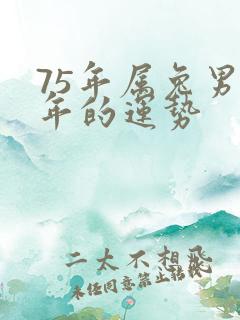 75年属兔男
年的运势
二太不想飛
未任同意禁止转载